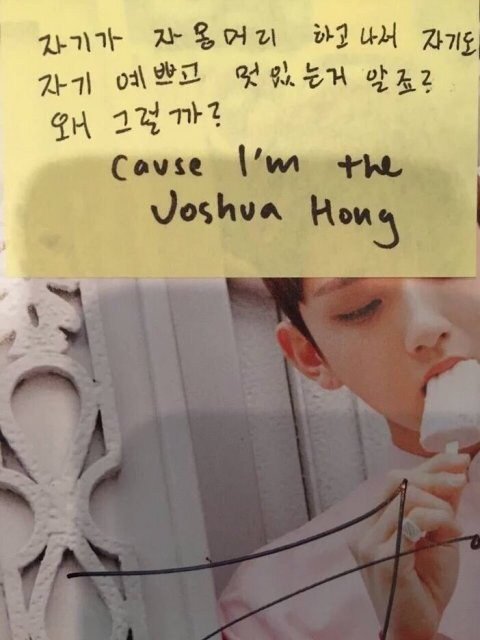 자기가 자몽머리 하고 나서 자기도
자기 예쁘고 멋있는거 알죠?
왜 그럴까?
Cause I'm the
Joshua Hong